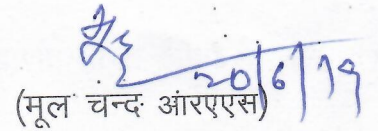 20/6/19
(मूल चन्द आरएएस)